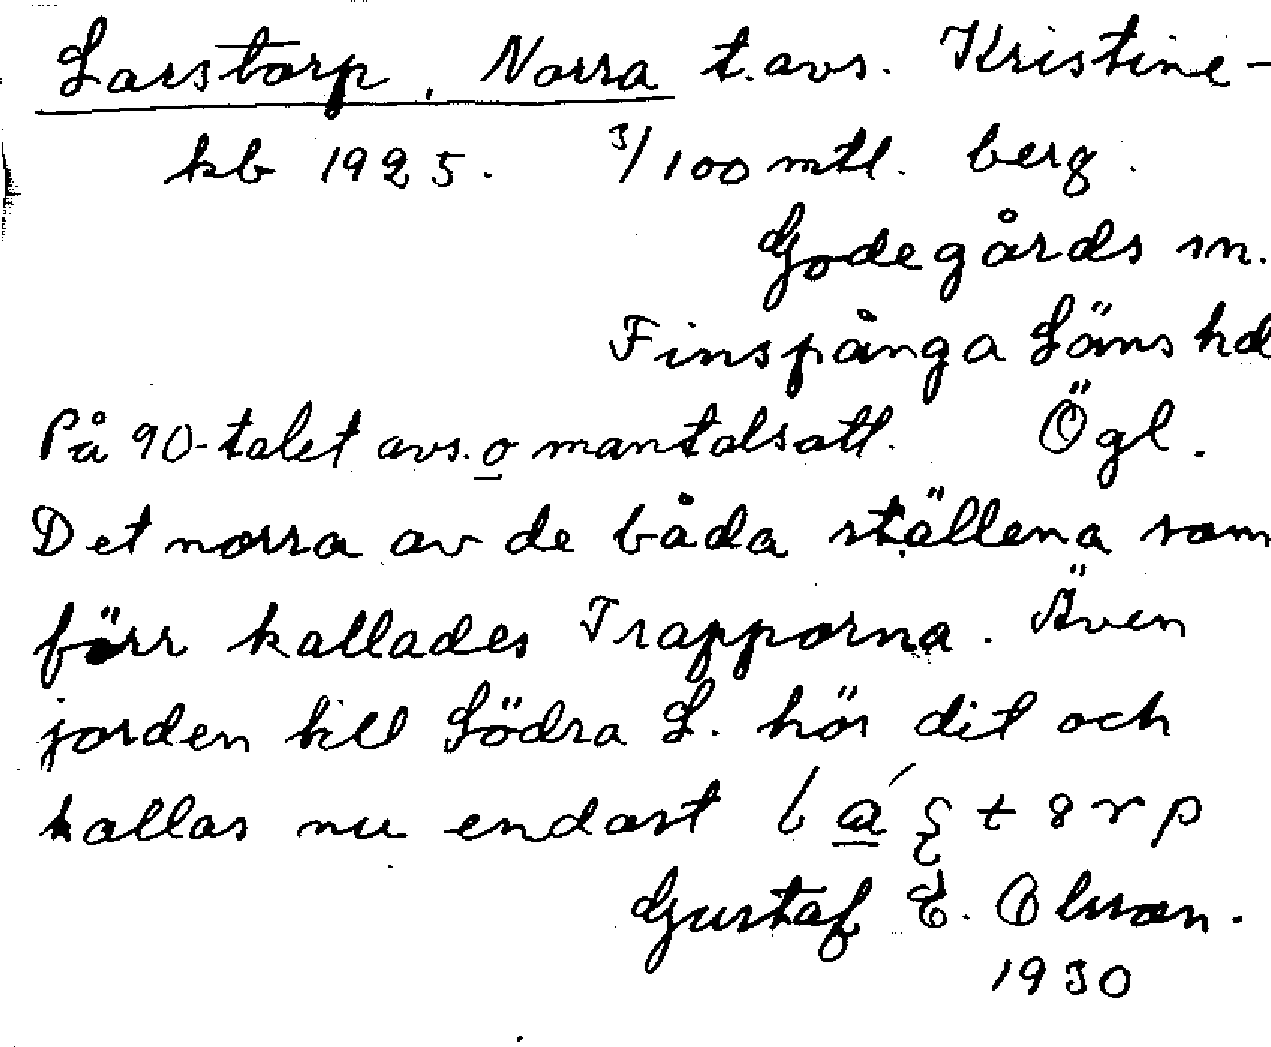 Larstorp, Norra t. avs. Kristine-
kb 1925. 3/100 mtl. berg.
Godegårds sn.
Finspånga Läns hd
På 90-talet avs. o mantalsatt. Ögl.
Det norra av de båda ställena som
förr kallades Trapporna. Även
jorden till Södra L. hör dit och
kallas nu endast
Gustaf E. Olsson.
1930